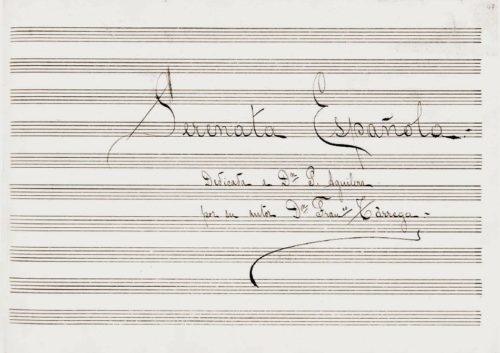 Serenata Española.
Dedicata a Dn P. Aguilera
por su autor Dn Franco Tárrega.